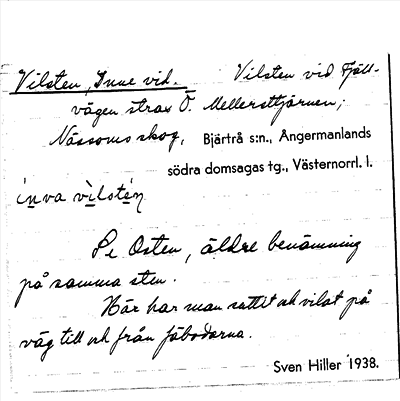 Vilsten, Inne vid. Vilsten vid Fjäll-
vägen strax Ö. Mellersttjärnen,
Nässoms skog, Bjärtrå s:n., Ångermanlands
södra domsagas tg., Västernorrl. l.
inva vilstén
Se Osten, äldre benämning
på samma sten.
Här har man suttit och vilat på
väg till och från fäbodarna.
Sven Hiller 1938.